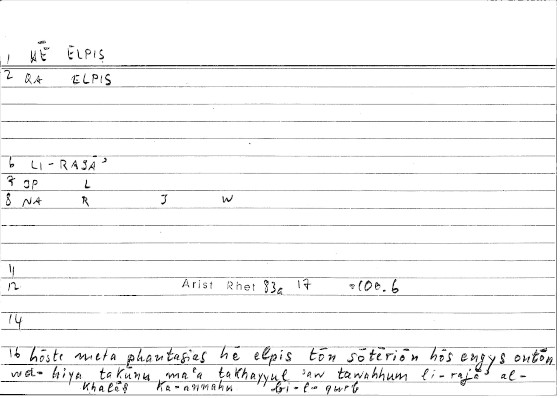 1 HĒ ELPIS
2 QA ELPIS
6 LI-RAJĀʾ
7 JP L
8 NA R J W
11
12 Arist Rhet 83a 17 =100.6
14
16 hōste meta phantasias hē elpis tōn sōtēriōn hōs engys ontōn
wa-hiya takūnu maʿa takhayyul ʾaw tawahhum li-rajāʾ al-
khalāṣ ka-annahu bi-l-qurb